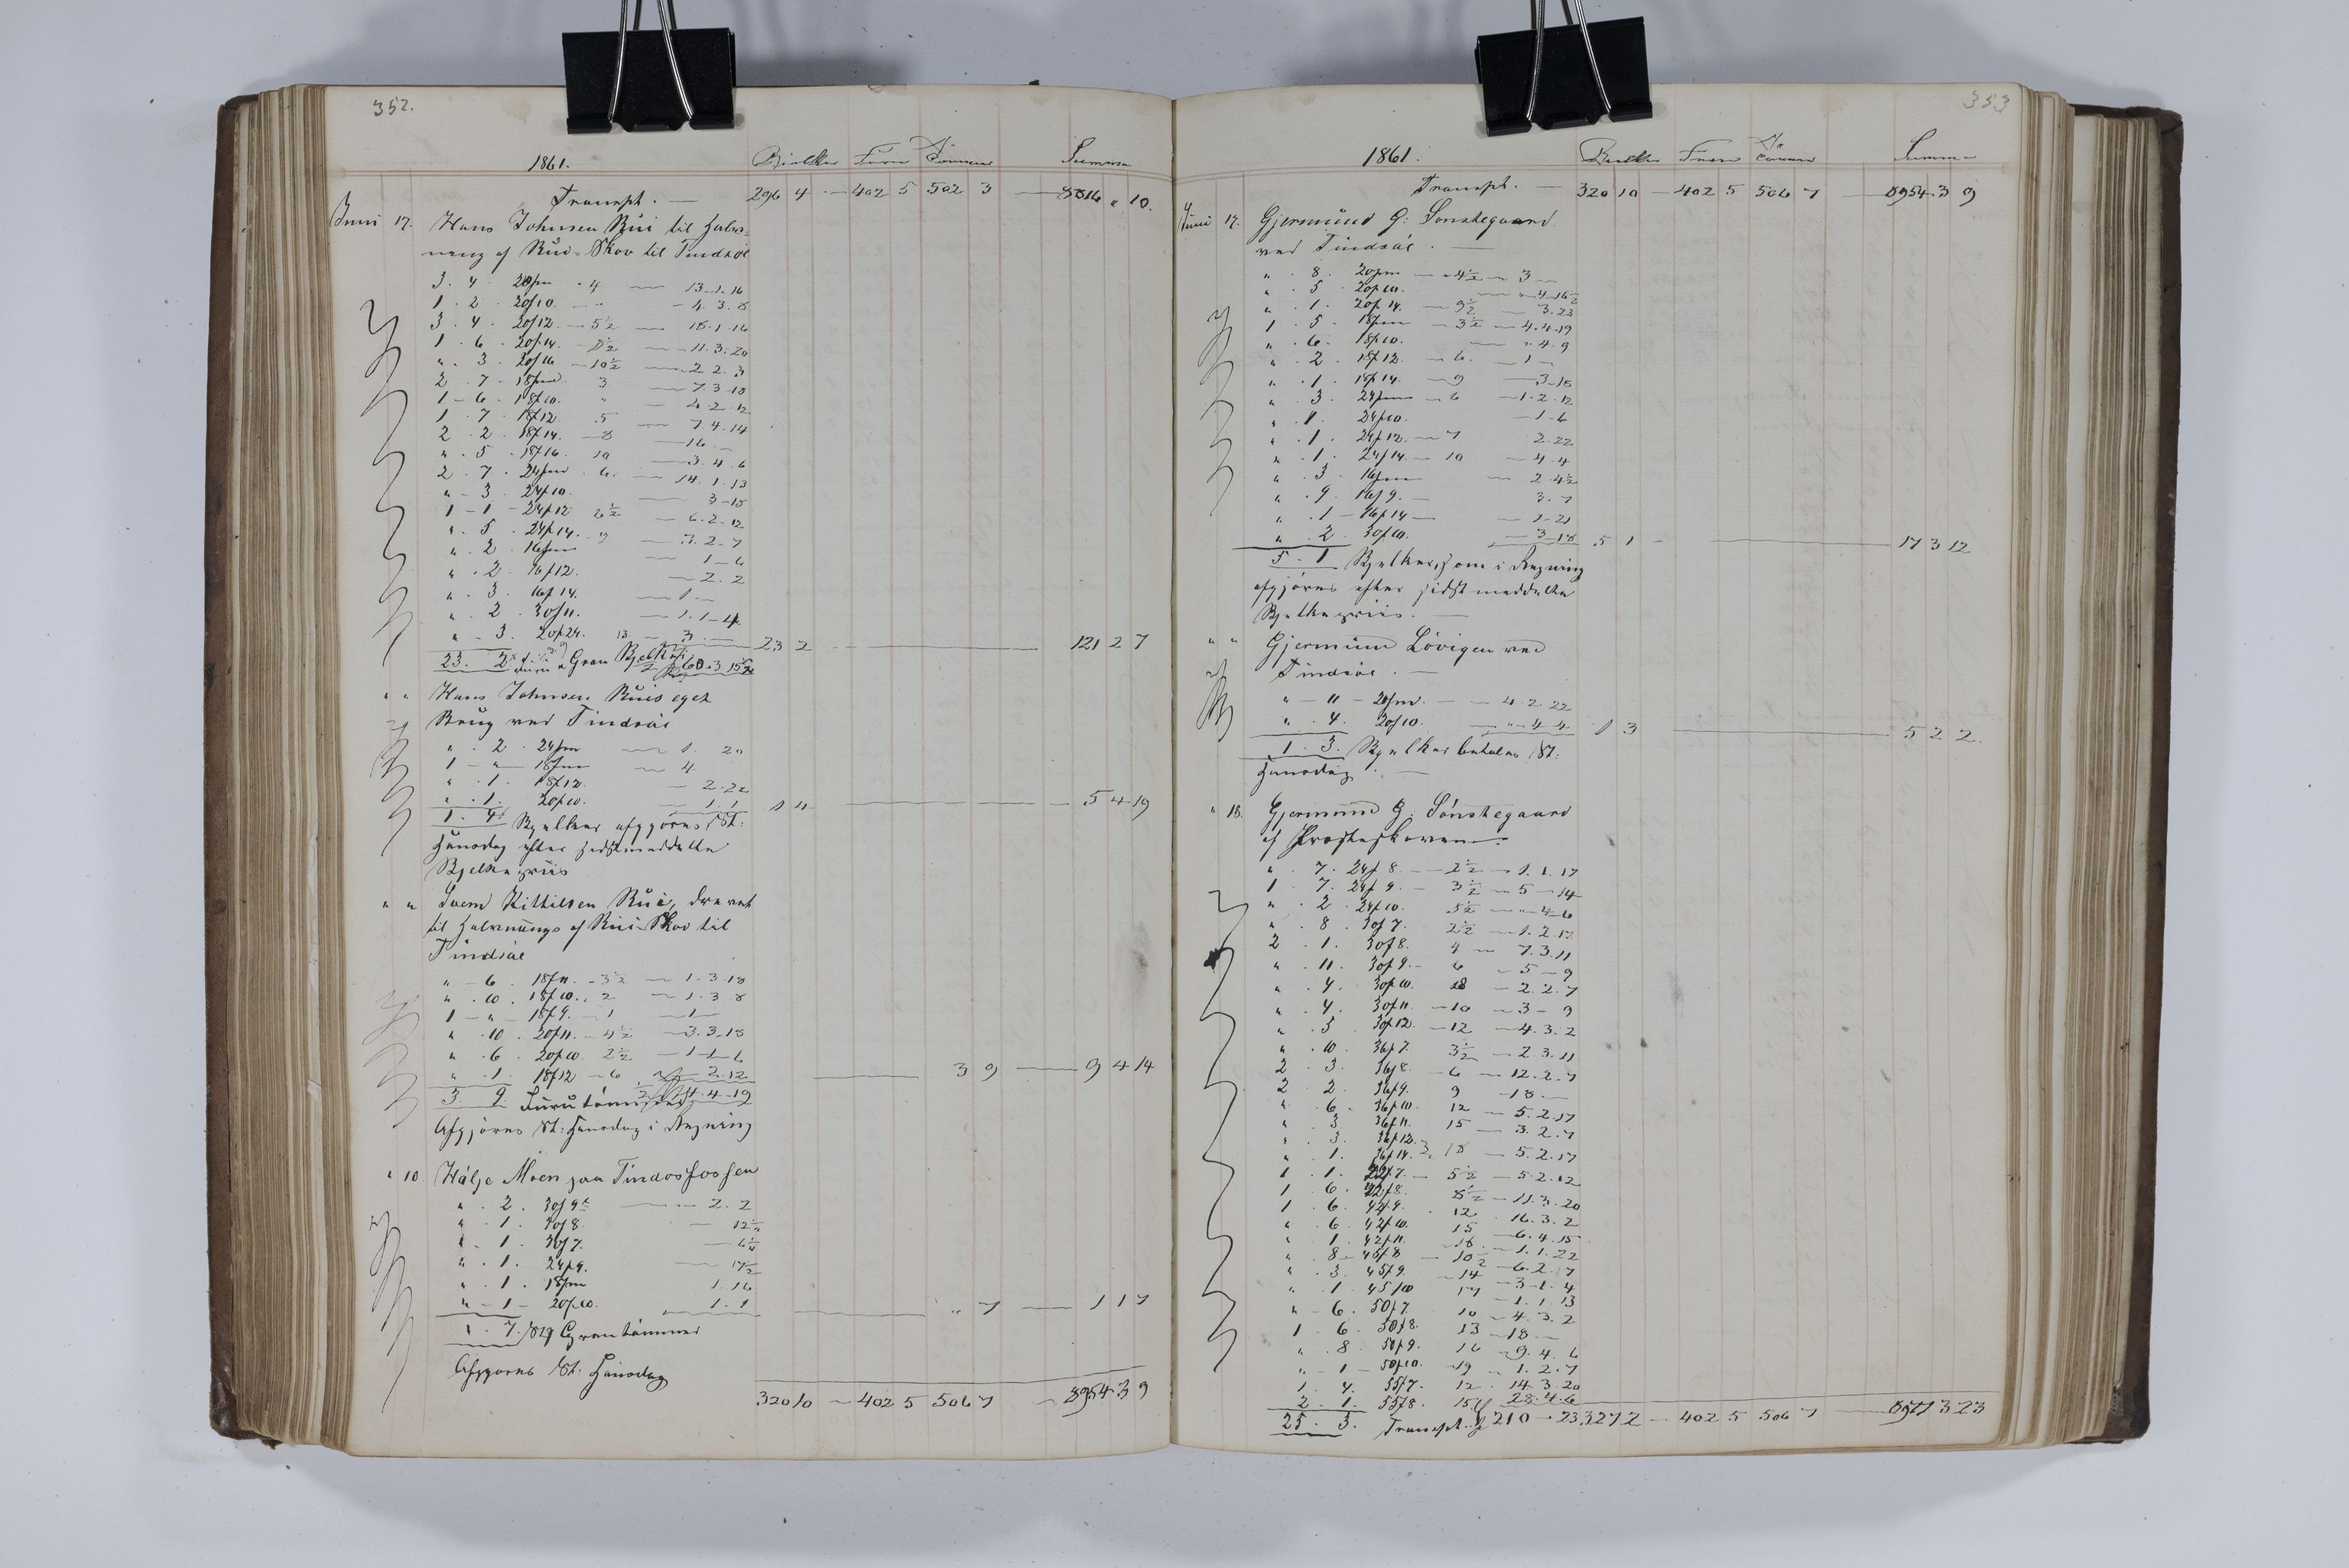 352.
1861. Bielker Furu Do Tömmer Summa
Transpt. — 296 4 — 402 5 502 3 — 8816 " 10.
Juni 17. Hans Johnsen Rui til
af Rui-Skov til Tindsöe
3. 4. 20/m " 4 — 13. 1. 16
1. 2. 20/10. " — 4. 3. 8
3. 4. 20/12. — 5½ — 18. 1. 16
1. 6. 20/14. — 8½ — 11. 3. 20
" 3. 20/16 — 10½ — 2. 2. 3
2. 7. 18/m 3 — 7. 3 - 18
1 - 6 - 18/10. " — 4. 2. 12
1. 7. 18/12 5 — 7. 4. 14
2. 2. 18/14. — 8 — 16. —
" 5. 18/16. 10 — 3. 4. 6
2. 7. 24/m 6. — 14. 1. 13
" - 3. 24/10. — 3 - 18
1 - 1 - 24/12 6½ — 6. 2. 12
" 5. 24/14. - 9 — 3. 2. 7
" 2. 16/m — 1 - 6
" . 2. 16/12. — 2. 2
" . 3. 16/14. — 1. —
" . 2. 30/11. — 1. 1 - 4
" . 3. 20/24. 13. — 3. — 23 2 — 121 2 7
23. 2 Gran Bjelker 60. 3 15½
" " Hans Johnsen Ruis eget
Brug ved Tindsöe
" . 2. 24/m — 1. 20
1 - " - 18/m — 4
" . 1. 18/12. — 2. 22
" . 1. 20/10. — 1. 1 1 4 — 5 4 19
1. 4. Bjelker afgjöres St:
Hansdag efter sidstmeddelte
Bjelkepriis
" " Svend Kittilsen Rui,
til af Rui-Skov til
Tindsöe
" - 6. 18/11. - 3½ — 1. 3. 18
" . 10. 18/10. . 2 — 1. 3 8
1 - " - 18/9. — 1 — 1 —
" . 10. 20/11. — 4½ — 3. 3. 18
" . 6. 20/10. 2½ — 1 - 1 - 6
" . 1. 18/12 — 6 2. 12 — 3 9 — 9 4 14
3. 9. Furutömmer 4. 4 - 19
Afgjöres St: Hansdag i Regning
" 10. Hälje Moen paa Tindosfossen
" . 2. 30/9 — 2. 2
" . 1. 30/8. — 12½
" - 1. 30/7. — 6¼
" . 1. 24/9. — 17½
" . 1. 18/m 1. 16
" - 1 - 20/10. 1. 1 — " 7 — 1 1 7
" . 7. Grantömmer
Afgjöres St: Hansdag
320 10 — 402 5 506 7 — 8954 3 9
353
1861. Bielker Furu Do Tömmer Summa
Transpt. — 320 10 — 402 5 506 7 — 8954. 3 9
Juni 17. Gjermund G: Sönstegaard
ved Tindsöe. —
" . 8. 20/m — 4½ — 3 —
" . 5. 20/10. — " 4. 16½
" . 1. 20/14. — 9½ — 3. 23
1. 5. 18/m — 3½ — 4. 4. 19
" . 6. 18/10. — " 4. 9
" . 2. 18/12. — 6. — 1 —
" . 1. 18/14. — 9 — 3 - 18
" . 3. 24/m — 6 — 1. 2. 12
" . 1. 24/10. — 1 - 6
" . 1. 24/12. — 7 2. 22
" . 1. 24/14. — 10 — 4. 4
" . 3. 16/m — 2 4½
" . 9. 16/9. — 3. 7
" . 1 - 16/14 — — 1 - 21
" . 2. 30/10. — 3 18 5 1 — 17 3 12
5. 1 Bjelker, som i Regning
afgjöres efter sidst meddelte
Bjelkepriis. —
" " Gjermund Lövigen ved
Tindsöe. —
" - 11 - 20/m — 4. 2. 22
" . 4. 20/10. — " 4 4. 1 3 — 5 2 2
1. 3. Bjelker betales St:
Hansdag. —
" 18. Gjermund G: Sönstegaard
af Presteskoven —
" . 7. 24/8. — 2½ — 1. 1. 17
1. 7. 24/9. — 3½ — 5 — 14
" . 2. 24/10. 5½ — " 4 - 6
" . 8. 30/7. 2½ — 1. 2. 12
2. 1. 30/8. 4 — 7. 3. 11
" . 11. 30/9. - 6 — 5 — 9
" . 4. 30/10. 8 — 2. 2. 7
" . 4. 30/11. — 10 — 3 - 9
" . 5. 30/12. — 12 — 4. 3. 2
" . 10. 36/7. 3½ — 2. 3. 11
2. 3. 36/8. — 6 — 12. 2. 7
2. 2. 36/9. 9 — 18. —
" . 6. 36/10. 12 — 5. 2. 17
" . 3. 36/11. 15 — 3. 2. 7
" . 3. 36/12. 18 — 5. 2. 17
" . 1. 36/14.
1. 1. 42/7. — 5½ — 5. 2. 12
1. 6. 42/8. 8½ — 11. 3. 20
1. 6. 42/9. . 12 16. 3. 2
" . 6. 42/10. 15 — 6. 4. 15
" . 1. 42/11. 18. — 1. 1. 22
" . 8 - 45/8 — 10½ — 6. 2. 7
" . 3. 45/9. — 14 — 3 - 1. 4
" . 1. 45/10 17 — 1. 1. 13
" - 6. 50/7. 10 — 4. 3. 2
1 - 6. 50/8. 13 — 18 —
" . 8. 50/9. 16 — 9. 4. 6
" - 1 - 50/10. — 19 — 1. 2. 7
1. 4. 55/7. 12. 14. 3. 20
2. 1. 55/8. 15½ 28. 4. 6
25. 3. Transpt. 210 - 23. 327 2 — 402 5 506 7 — 8977 3 23